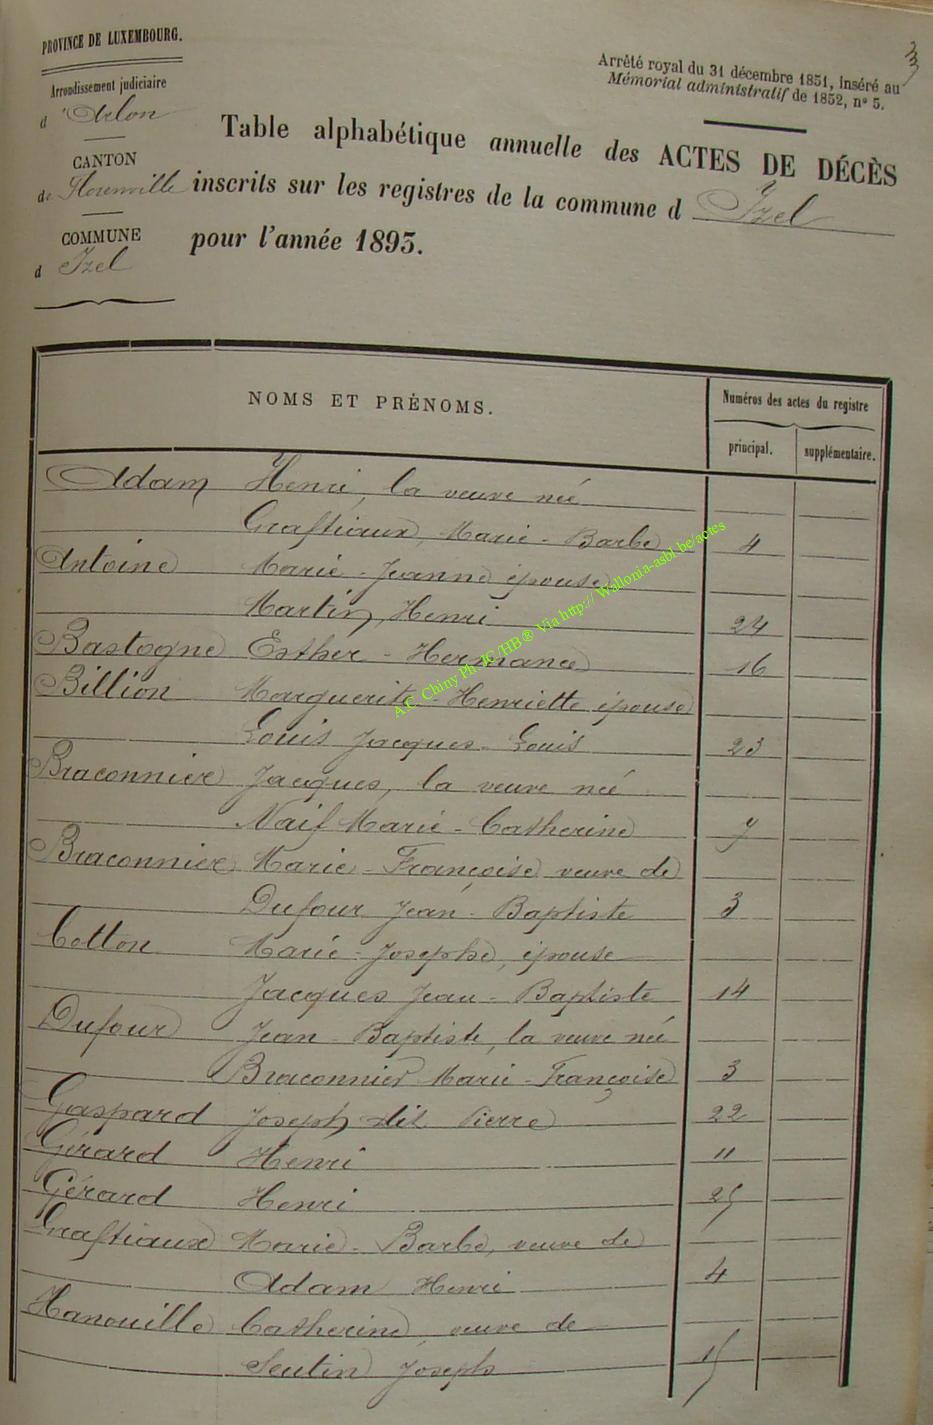 PROVINCE DE LUXEMBOURG.
Arrondissement judiciaire
d'Arlon
CANTON
de Florenville
COMMUNE
d Izel
3
Arrêté royal du 31 décembre 1851, inséré au
Mémorial administratif de 1852, nº 5.
Table alphabétique annuelle des ACTES DE DÉCÈS
inscrits sur les registres de la commune d Izel
pour l'année 1893.
NOMS ET PRÉNOMS.
Numéros des actes du registre
principal. supplémentaire.
Adam Henri, la veuve née
Graftiaux, Marie-Barbe 4
Antoine Marie-Jeanne épouse
Martin, Henri 24
Bastogne Esther-Hermance 16
Billion Marguerite-Henriette épouse
Louis Jacques-Louis 23
Braconnier Jacques, la veuve née
Naif Marie-Catherine 7
Braconnier Marie-Françoise veuve de
Dufour Jean-Baptiste 3
Cotton Marie-Josephe, épouse
Jacques Jean-Baptiste 14
Dufour Jean-Baptiste, la veuve née
Braconnier Marie-Françoise 3
Gaspard Joseph dit Pierre 22
Gérard Henri 11
Gérard Henri 25
Graftiaux Marie-Barbe, veuve de
Adam Henri 4
Hanouille Catherine, veuve de
Seutin Joseph 15
A.C. Chiny Ph. JC /HB ® Via http:// Wallonia-asbl.be/actes